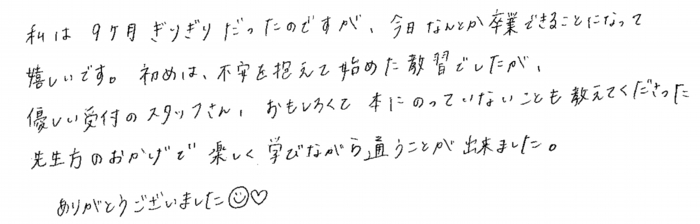 私は 9ヶ月 ぎりぎり だったのですが、今日 なんとか 卒業できることになって
嬉しいです。初めは、不安を抱えて始めた教習でしたが、
優しい受付のスタッフさん、おもしろくて 本にのっていないことも 教えてくださった
先生方のおかげで 楽しく 学びながら通うことが 出来ました。
ありがとうございました☺♡